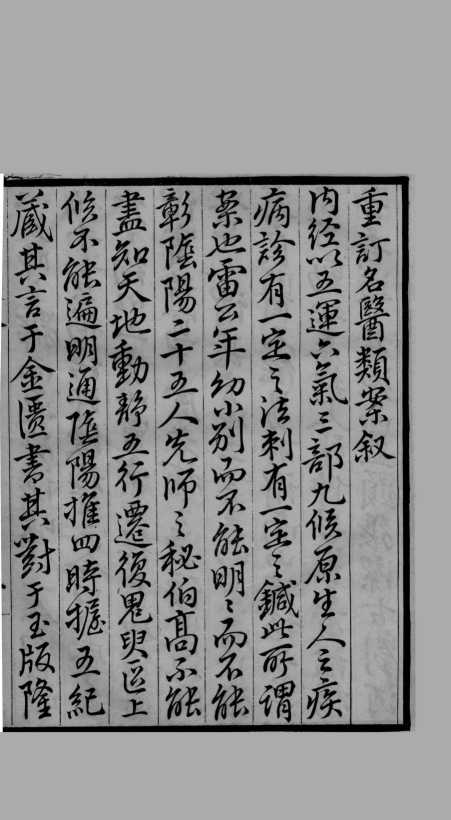 重訂名醫類案叙
内经以五運六氣三部九候原生人之疾
病診有一定之法刺有一定之鍼此所謂
案也雷公年幼小别而不能明〻而不能
彰隂陽二十五人先師之秘伯髙不能
盡知天地動静五行遷復鬼臾區上
候不能遍明通隂陽推四時握五紀
蔵其言于金匱書其對于玉版隆